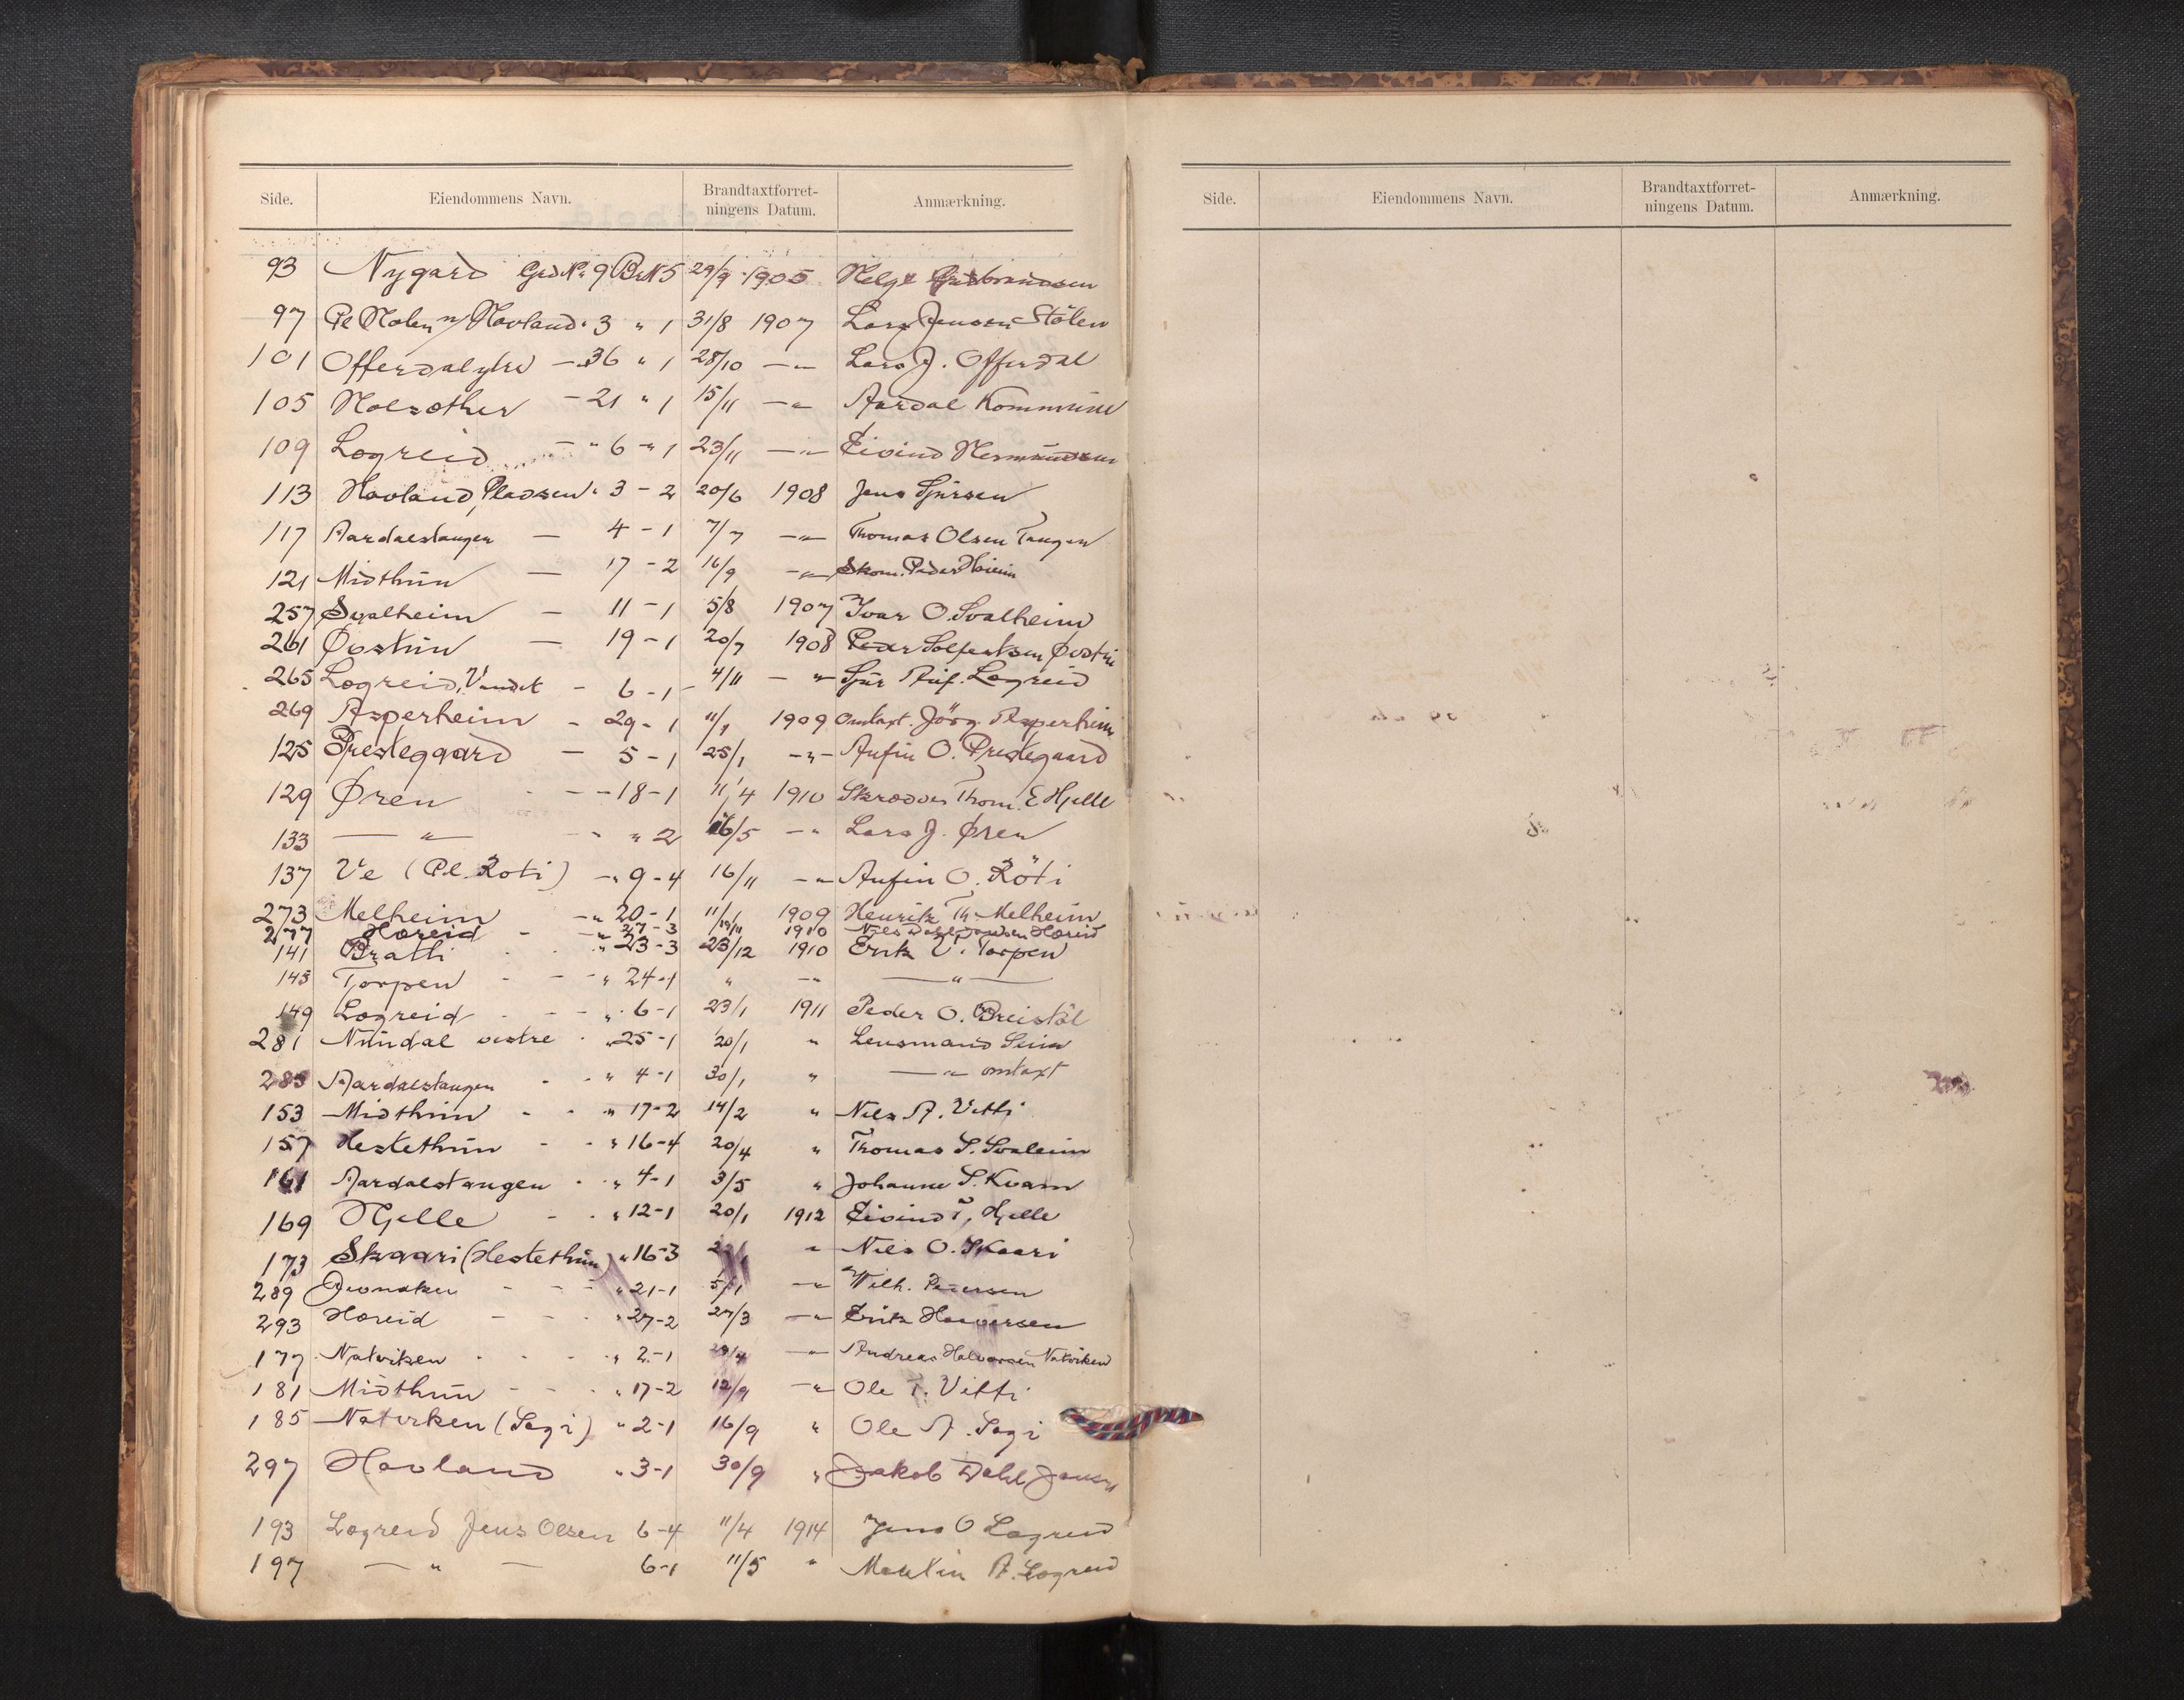 Side. Eiendommens Navn. Brandtaxtforret-ningens Datum. Anmærkning.
93 Nygard Grd.Nr. 9 Br.N 5 29/9 1905 Helge
97 Pl Molen n/ Hovland " 3 " 1 31/8 1907 Lars Jensen Stölen
101 Offerdal ytre — " 36 " 1 28/10 — " Lars J. Offerdal
105 — 21 " 1 15/11 — " Aardal Kommune
109 Lægreid — " 6 — " 1 23/11 — " Eivind Hermundsen
113 Hovland, Pladsen " 3 - 2 20/6 1908 Jens Sjursen
117 Aardalstangen — 4 - 1 7/7 — " Thomas Olsen Tangen
121 Midthun — 17 - 2 16/9 — " Skom. Peder
257 Svalheim — 11 - 1 5/8 1907 Ivar O. Svalheim
261 Øvstun — 19 - 1 20/7 1908 Peder Solfestsen Øvstun
265 Lægreid, - 6 - 1 - 4/11 — " Sjur Anf. Lægreid
269 Asperheim - 29 - 1 11/1 1909 Omtaxt. Jörg. Asperheim
125 Prestegaard — 5 - 1 25/1 - " - Anfin O. Prestegaard
129 Øren - - - 18 - 1 11/4 1910 Skrædder Thom. E Hjelle
133 — " — - " 2 16/5 — " Lars J. Øren
137 Ve (Pl. Röti) — " 9 - 4 16/11 — " Anfin O. Röti
273 Melheim — " 20 - 1 11/1 1909 Henrik Th. Melheim
277 Hæreid - — " 27 - 3 19/11 1910 Nils Dahl Jansen Hæreid
141 Bratti - - " 23 - 3 23/12 1910 Erik T. Torpen
145 Torpen - - - " 24 - 1 " — " — " —
149 Lægreid - - - " 6 - 1 23/1 1911 Peder O. Breistöl
281 Nundal vestre - " 25 - 1 20/1 " Lensmand Seim
285 Aardalstangen - - " 4 - 1 30/1 " — " omtaxt
153 Midthun - - " 17 - 2 14/2 " Nils A. Vetti
157 Hestethun - - " 16 - 4 20/4 " Thomas S. Svaleim
161 Aardalstangen - - " 4 - 1 3/5 " Johanne S. Kvam
169 Hjelle - - " 12 - 1 20/1 1912 Eivind T. Hjelle
173 Skaari (Hestethun) " 16 - 3 " Nils O. Skaari
289 - - - " 21 - 1 5/1 — " Wilh. Petersen
293 Hæreid - - - " 27 - 2 27/3 — " Erik Halversen
177 Natviken - - - " 2 - 1 29/4 — " Andreas Halvorsen Natviken
181 Midthun - - - " 17 - 2 12/9 — " Ole T. Vetti
185 Natviken (Sagi) " 2 - 1 16/9 " Ole A. Sagi
297 Hovland " 3 - 1 30/9 " Jakob Dahl Jansen
193 Lægreid Jens Olsen 6 - 4 11/4 1914 Jens O Lægreid
197 — " — 6 - 1 11/5 " Martin A. Lægreid
Side. Eiendommens Navn. Brandtaxtforret-ningens Datum. Anmærkning.